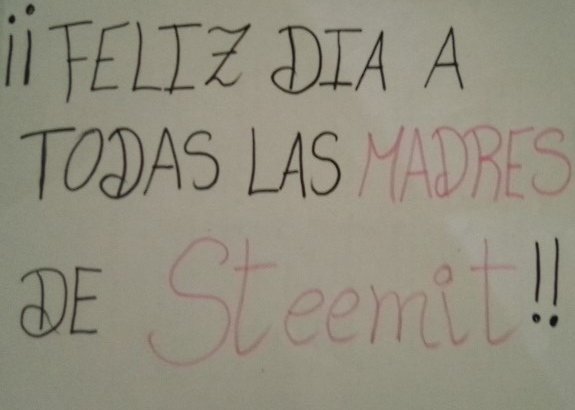 ¡¡FELIZ DIA A
TODAS LAS MADRES
DE Steemit!!